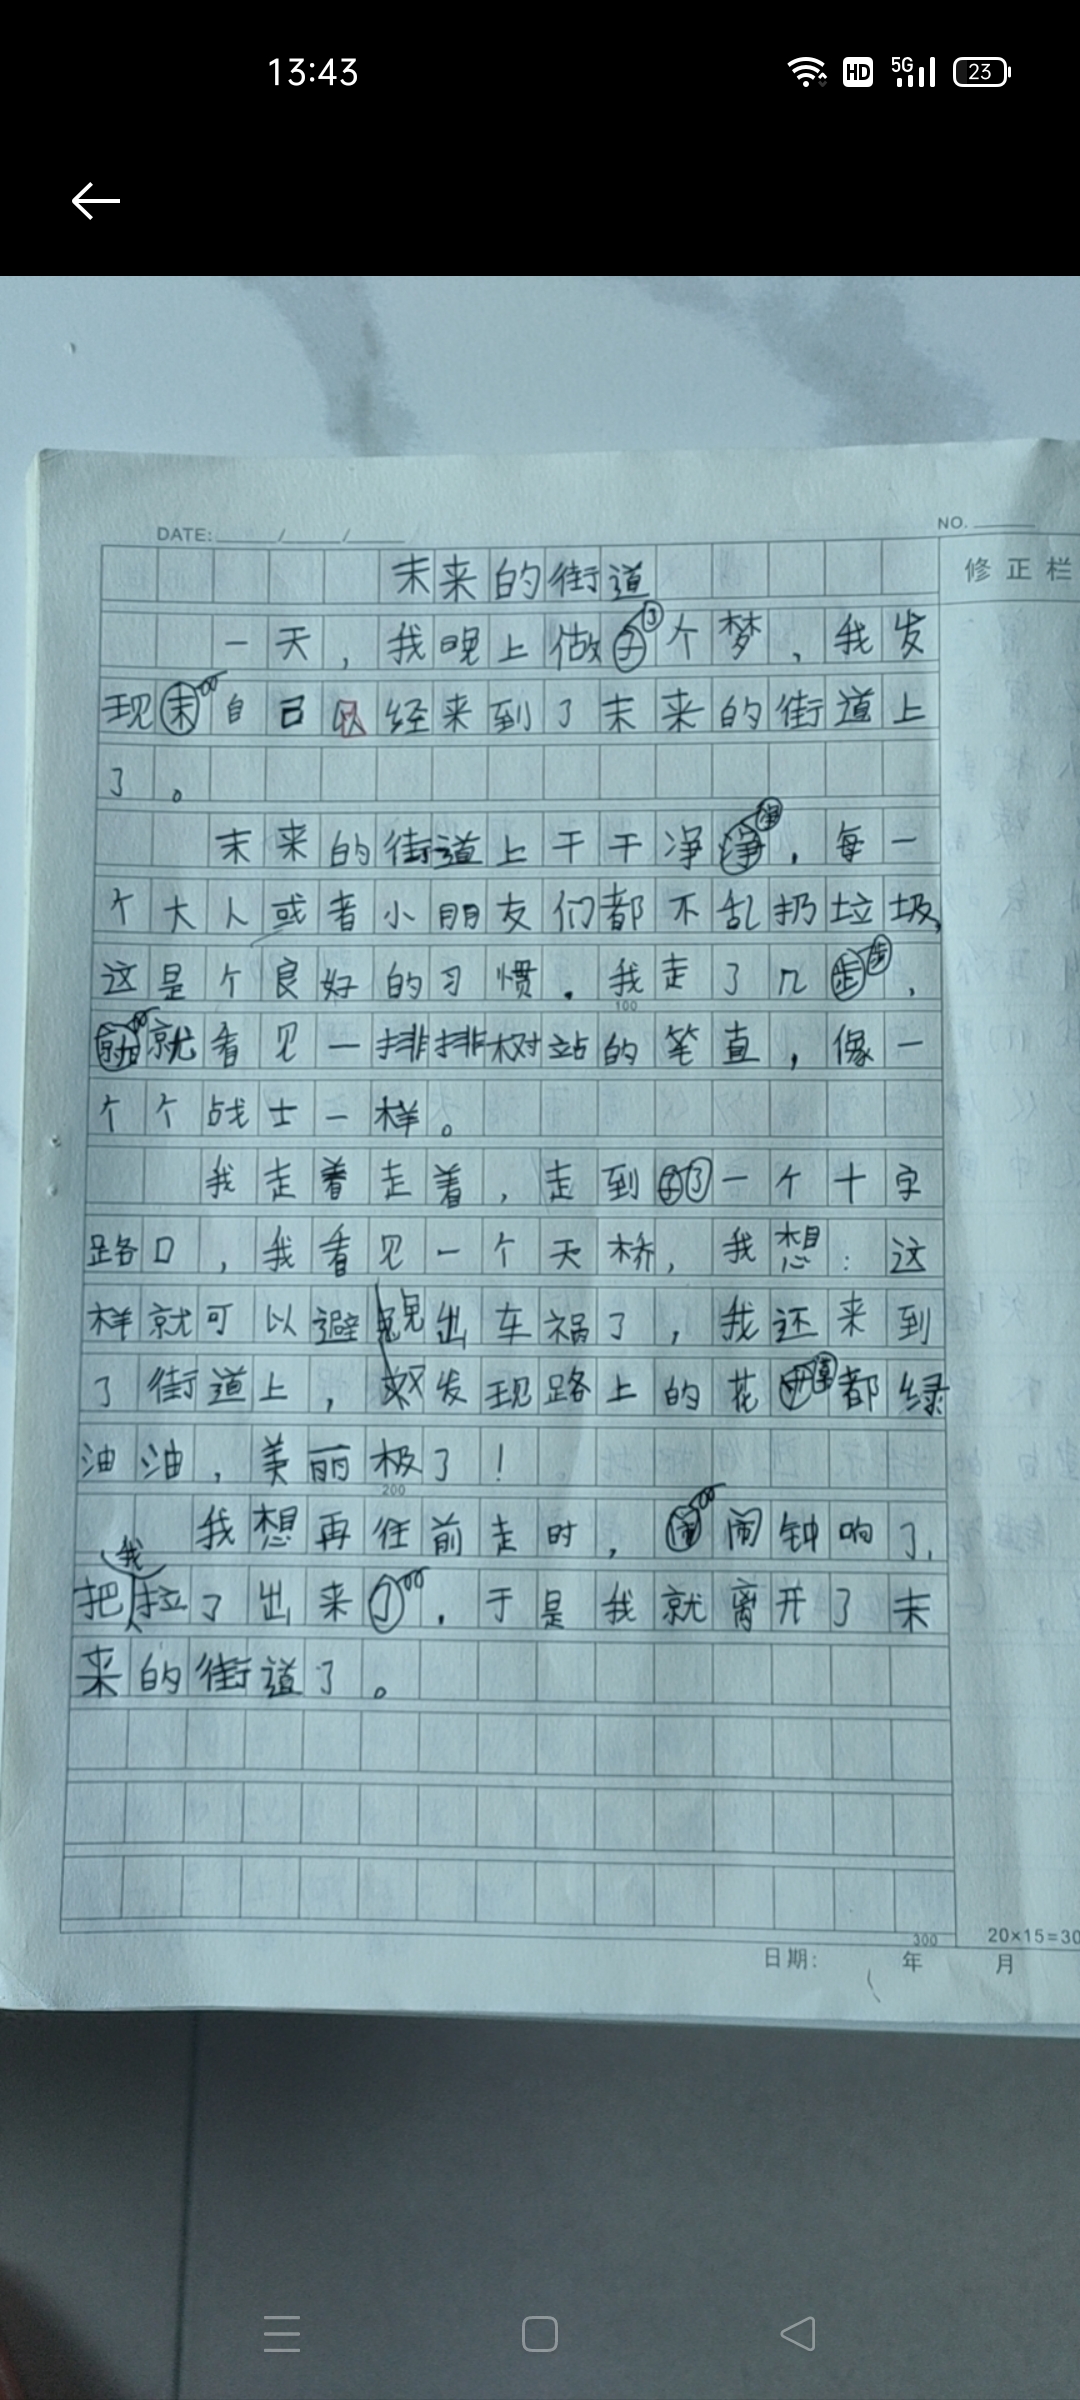 13:43
HD 5G 23
DATE: / /
NO.
未来的街道
修正栏
一天，我晚上做了个梦，我发
现自己以经来到了末来的街道上
了。
末来的街道上干干净净，每一
个大人或者小朋友们都不乱扔垃圾，
这是个良好的习惯．我走了几步，
就看见一排排树站的笔直，像一
100
个个战士一样。
我走着走着，走到了一个十字
路口，我看见一个天桥，我想：这
样就可以避免出车祸了，我还来到
了街道上，发现路上的花草都绿
油油，美丽极了！
200
我想再往前走时，闹钟响了，
把我拉了出来，于是我就离开了末
来的街道了。
300
20×15=30
日期： 年 月